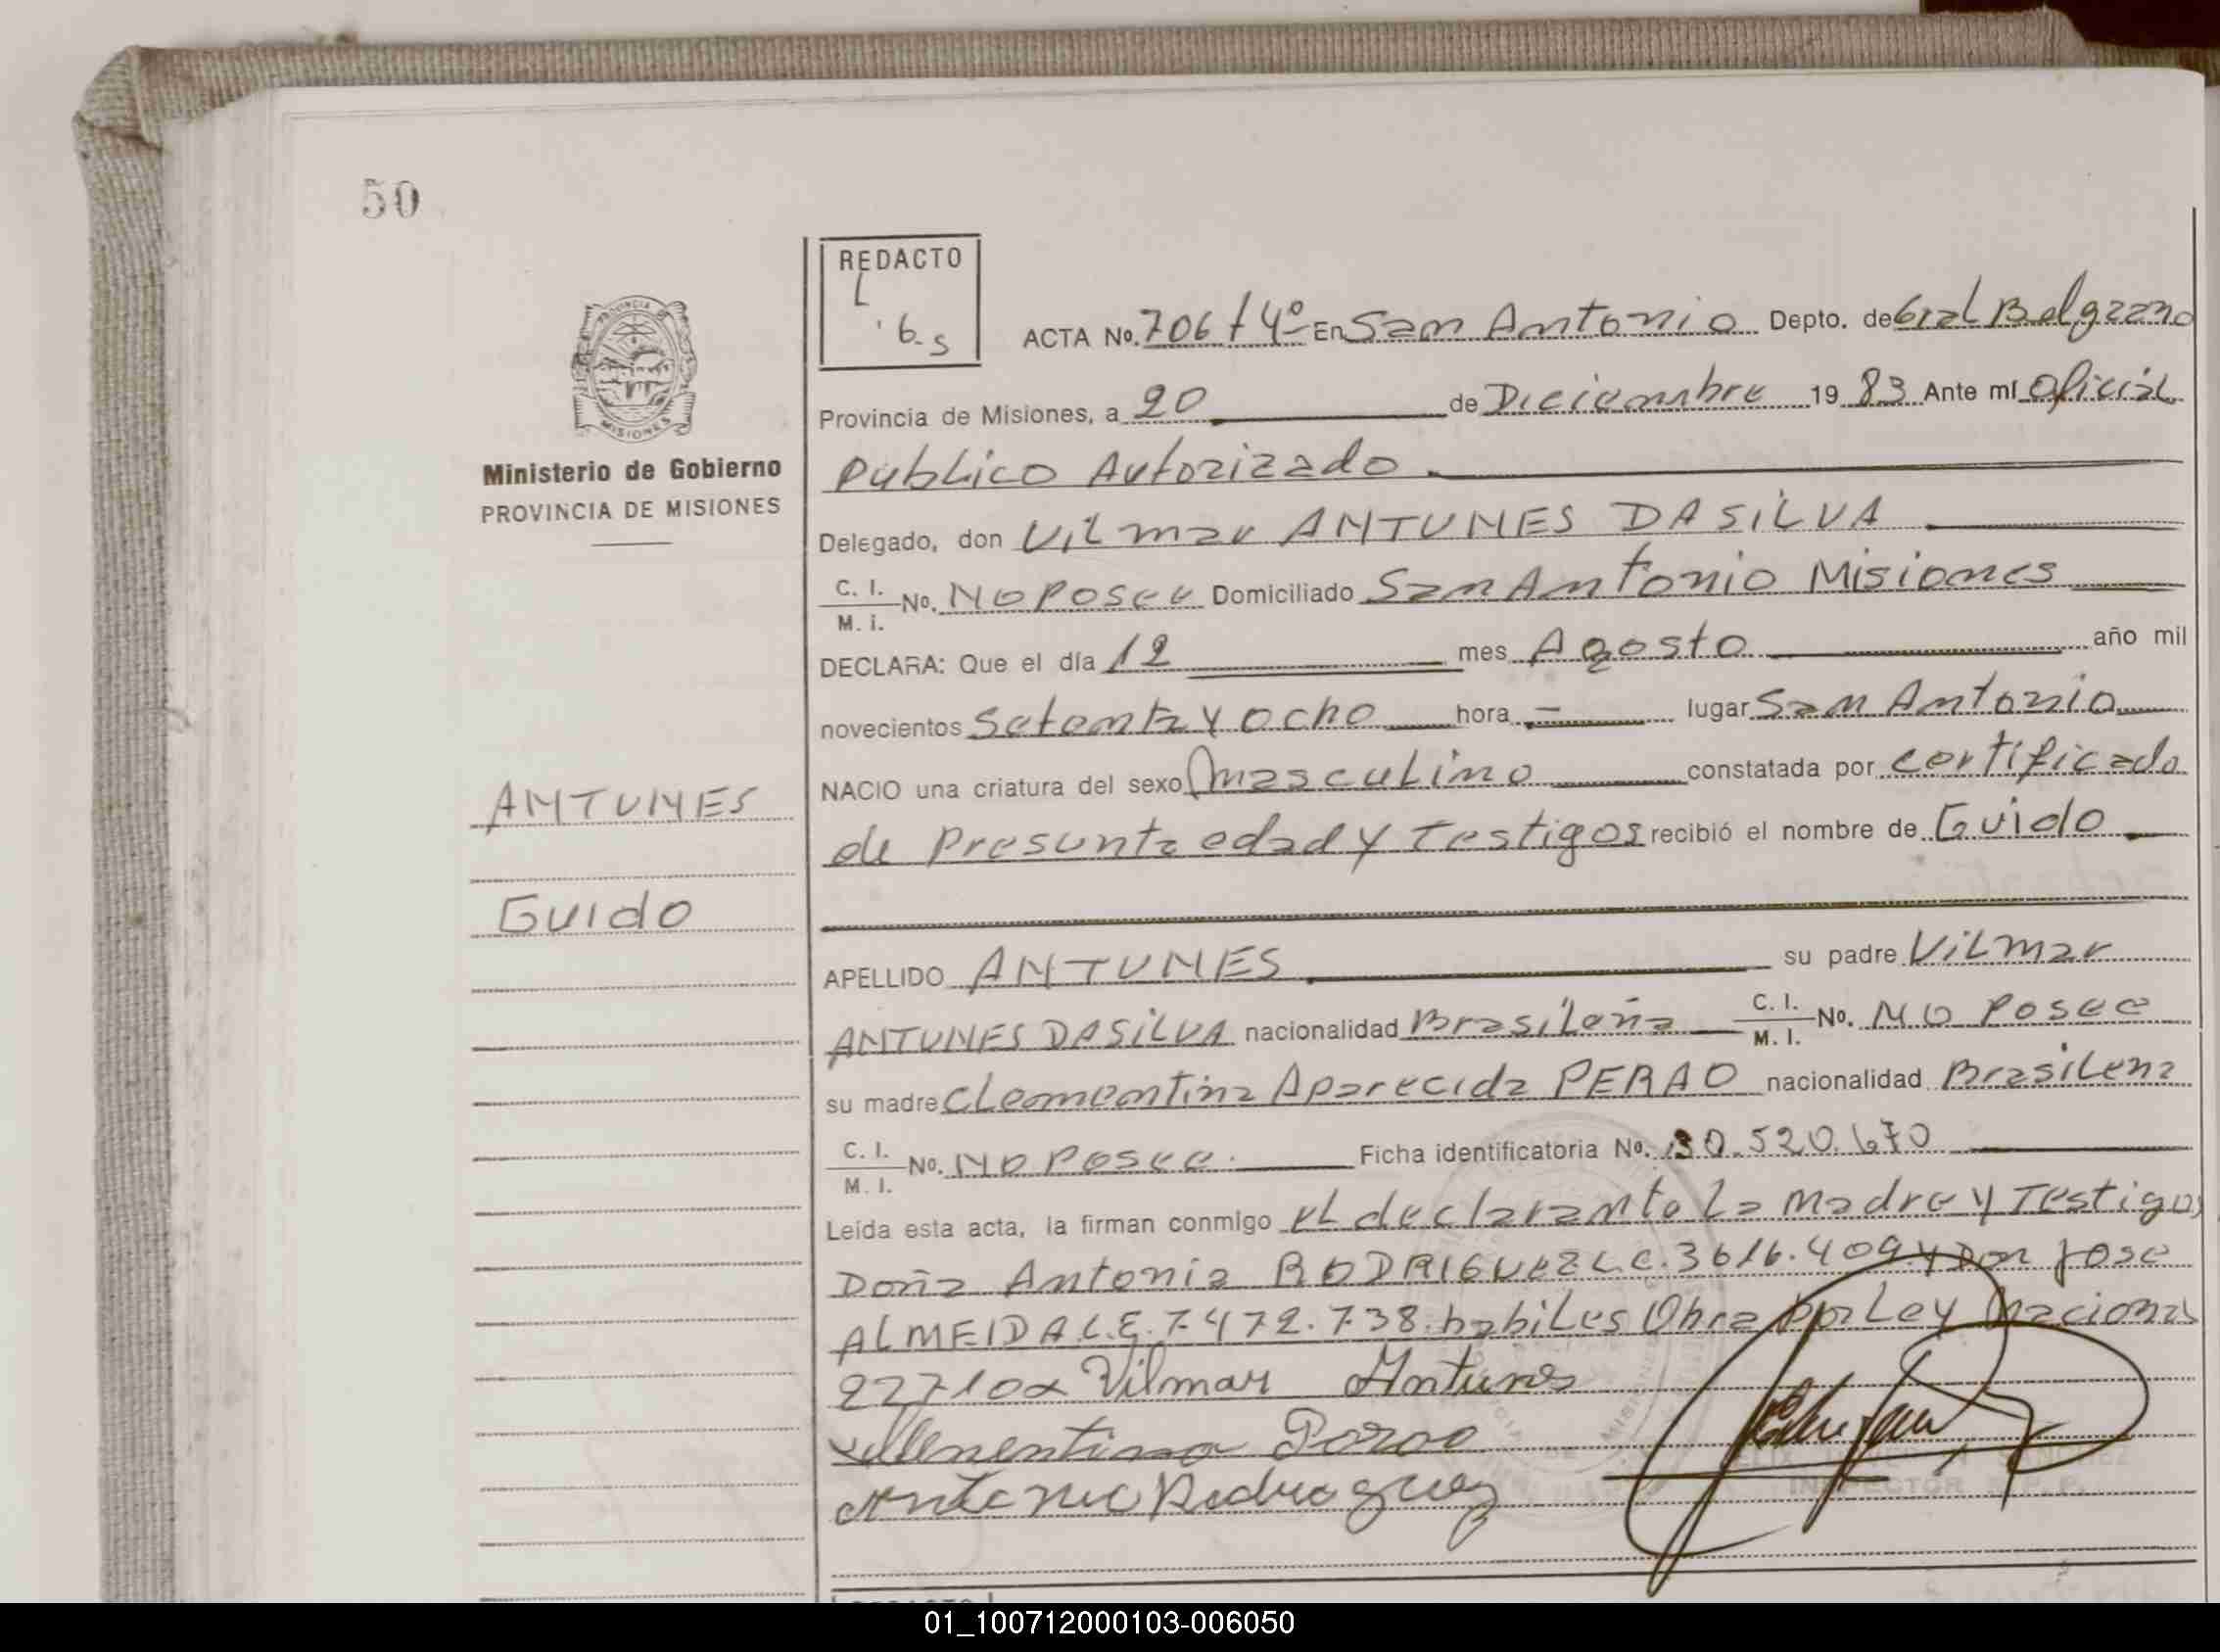 50
REDACTO
L
b. s
ACTA No. 706 t 4º En San Antonio Depto. de Gral Belgrano
Provincia de Misiones, a 20 de Diciembre 1983 Ante mí Oficial
Publico Autorizado
Ministerio de Gobierno
PROVINCIA DE MISIONES
Delegado, don Vilmar ANTUNES DASILVA
C. I.
M. i. No. No Posee Domiciliado San Antonio Misiones
DECLARA: Que el día 12 mes Agosto año mil
novecientos Setenta y ocho hora - lugar San Antonio
NACIO una criatura del sexo masculino constatada por certificado
de Presunta edad y Testigos recibió el nombre de Guido
ANTUNES
Guido
APELLIDO ANTUNES su padre Vilmar
ANTUNES DASILVA nacionalidad Brasileña C. I.
M. I. No. No Posee
su madre Clementina Aparecida PERAO nacionalidad Brasilena
C. I.
M. I. No. No Posee. Ficha identificatoria No. 30.520.670
Leída esta acta, la firman conmigo el declarante La madre y Testigos
Doña Antonia RODRIGUEZ L.C. 3616.409 y Don Jose
ALMEIDA L.E. 7.472.738. habiles Obra por Ley Nacional
22710 x Vilmar Antunes
x Clementina
Antonia Rodriguez
INSPECTOR
01_100712000103-006050